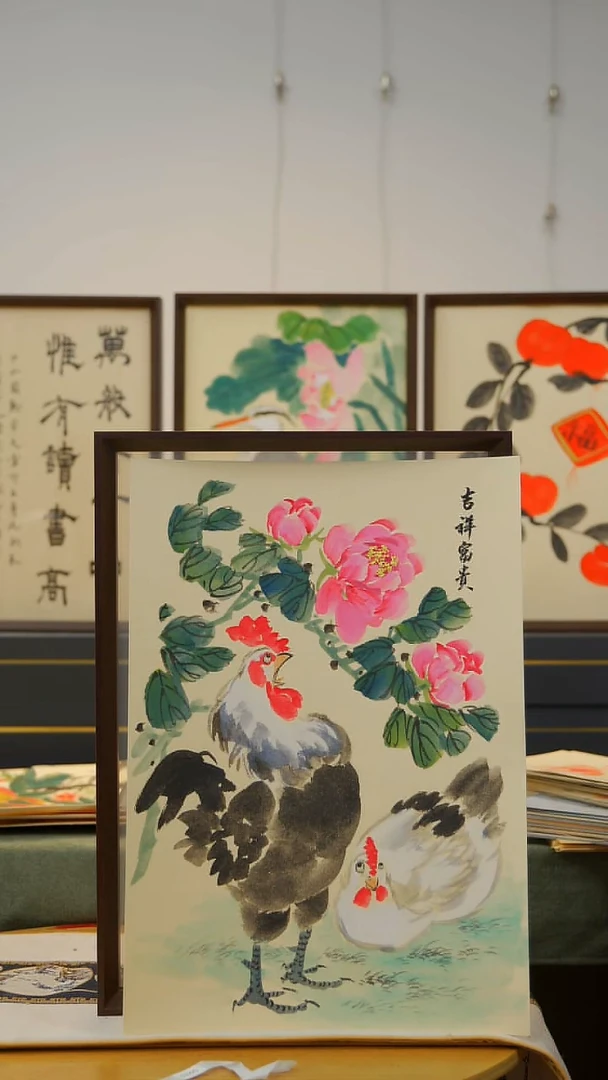 吉祥富貴
萬般
惟有讀書高
福